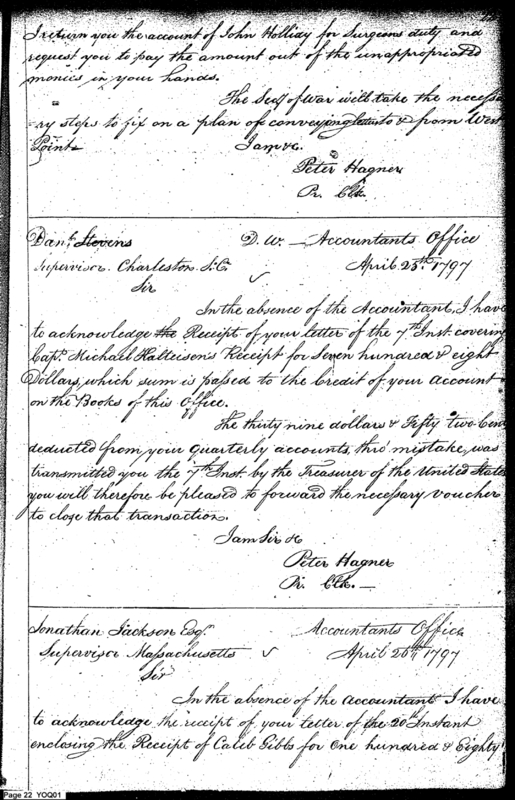 I return you the account of John Holliday for Surgeons duty and
request you to pay the amount out of the unappropriated
monies in your hands.
The Secy of War will take the necessa
ry steps to fix on a plan of conveying letters to & from West
Point
I am &c.
Peter Hagner
Pr. Clk.
Danl. Stevens D. W. — Accountants Office
Supervisor Charleston S.C April 25th. 1797
Sir
In the absence of the Accountant, I have
to acknowledge the Receipt of your letter of the 7th Inst. covering
Capt. Michael Kalteisens Receipt for Seven hundred & eight
Dollars, which sum is passed to the Credit of your Account
on the Books of this Office.
The thirty nine dollars & Fifty two Cents
deducted from your Quarterly accounts, thro' mistake, was
transmitted you the 7th Inst. by the Treasurer of the United States
you will therefore be pleased to forward the necessary voucher
to close that transaction.
I am Sir &c
Peter Hagner
Pr. Clk. —
Jonathan Jackson Esqr. Accountants Office
Supervisor Massachusetts April 26th 1797
Sir
In the absence of the Accountant I have
to acknowledge the receipt of your letter of the 20th Instant
enclosing the Receipt of Caleb Gibbs for One hundred & Eighty
Page 22 YOQ01